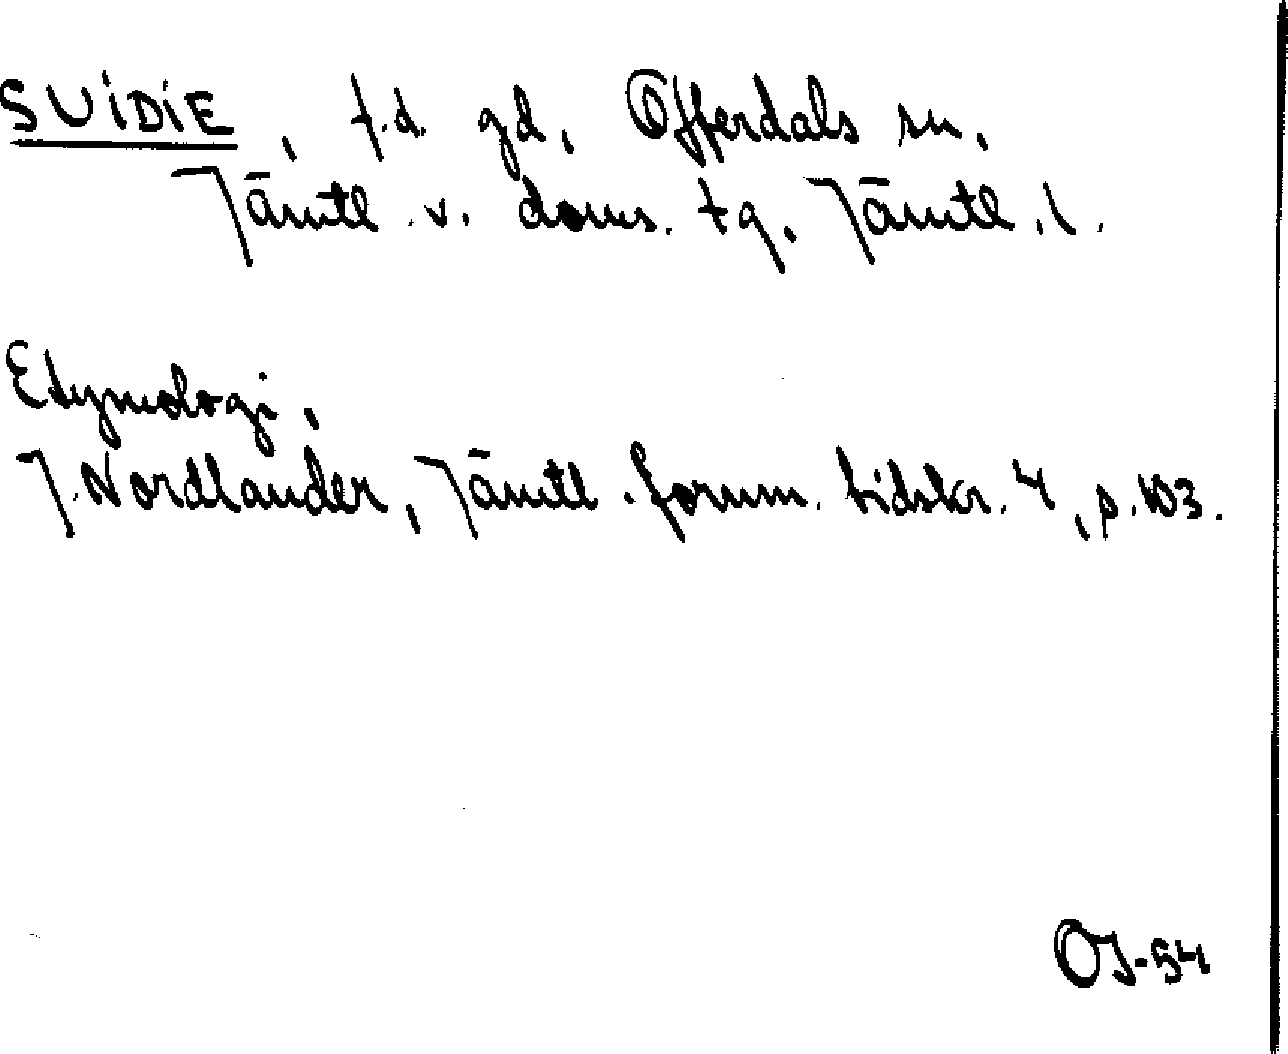 SUIDIE, f.d. gd, Offerdals sn,
Jämtl. v. doms. tg. Jämtl. l.
Etymologi,
J. Nordlander, Jämtl. fornm. tidskr. 4, p. 103.
OJ-54